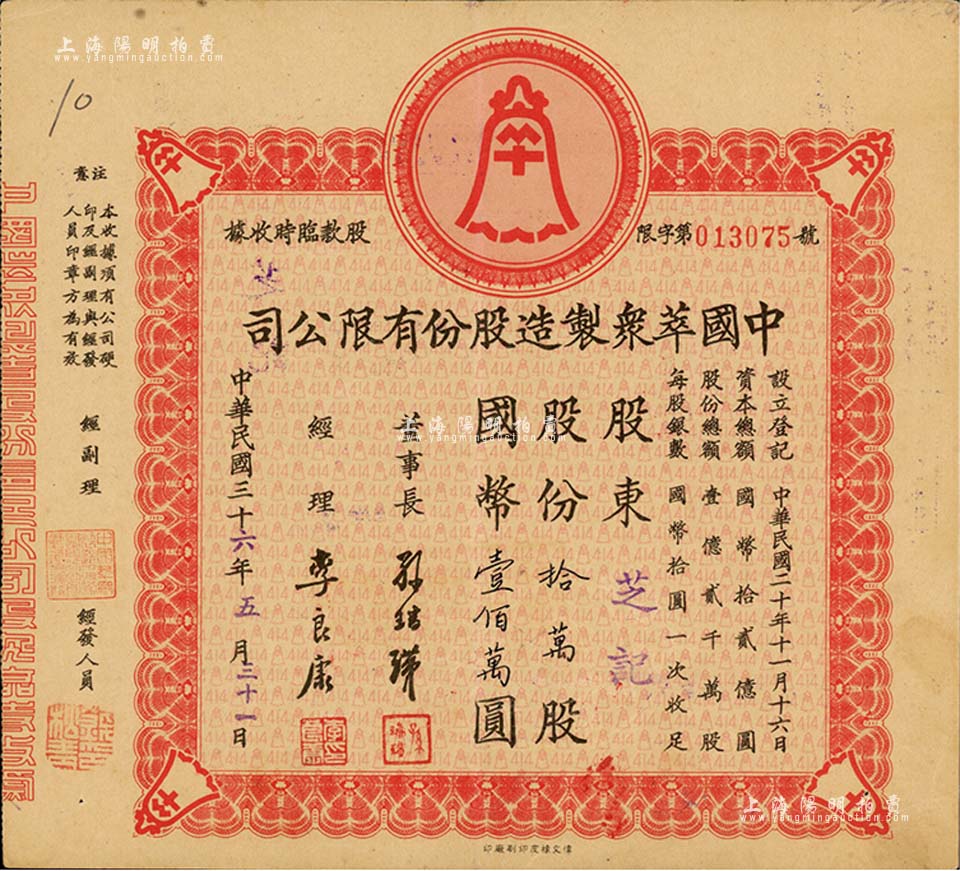 上海陽明拍賣
www.yangmingauction.com
10
股款臨時收據
限字第013075號
中國萃衆製造股份有限公司
設立登記 中華民國二十年十一月十六日
資本總額 國幣拾貳億圓
股份總額 壹億貳千萬股
每股銀數 國幣拾圓一次收足
股東 芝記
股份拾萬股
國幣壹佰萬圓
董事長
經理 李良康
中華民國三十六年五月三十一日
注意
本收據須有公司硬
印及經副理與經發
人員印章方為有效
經副理
經發人員
上海陽明拍賣
www.yangmingauction.com
上海陽明拍賣
www.yangmingauction.com